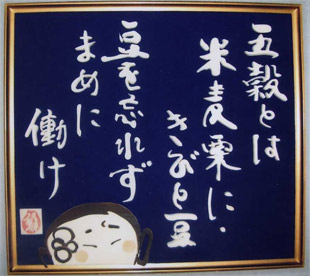 五穀とは
米麦粟に
きびと豆
豆を忘れず
まめに
働け